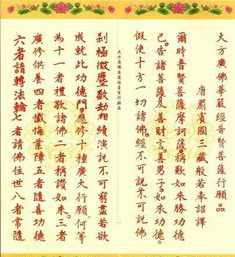 大方廣佛華嚴經普賢菩薩行願品
唐罽賓國三藏般若奉詔譯
爾時普賢菩薩摩訶薩稱歎如來勝功德
已告諸菩薩及善財言善男子如來功德
假使十方一切諸佛經不可說不可說佛
剎極微塵數劫相續演說不可窮盡若欲
成就此功德門應修十種廣大行願何等
為十一者禮敬諸佛二者稱讚如來三者
廣修供養四者懺悔業障五者隨喜功德
六者請轉法輪七者請佛住世八者常隨